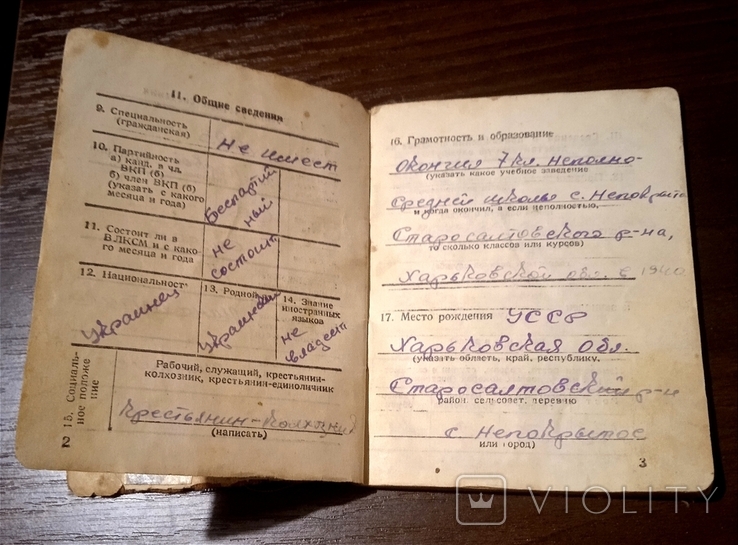 II. Общие сведения
9. Специальность
(гражданская)
Не имеет
10. Партийность
а) канд. в чл.
ВКП (б)
б) член ВКП (б)
(указать с какого
месяца и года)
Беспартий
ный
11. Состоит ли в
ВЛКСМ и с како
го месяца и года
не
состоит
12. Национальност
Украинец
13. Родной
Украинский
14. Знание
иностранных
языков
не
владеет
15. Социаль-
ное положе
ние
Рабочий, служащий, крестьянин-
колхозник, крестьянин-единоличник
Крестьянин-колхозник
(написать)
2
16. Грамотность и образование
Окончил 7 кл. Неполно-
(указать какое учебное заведение
Средней школы с. Непокрыто
и когда окончил, а если не полностью,
Старосалтовского р-на,
то сколько классов или курсов)
Харьковской обл. в 1940
17. Место рождения УССР
Харьковская обл.
(указать область, край, республику,
Старосалтовский р-н
район, сельсовет, деревню
с. Непокрытое
или город)
3
VIOLITY